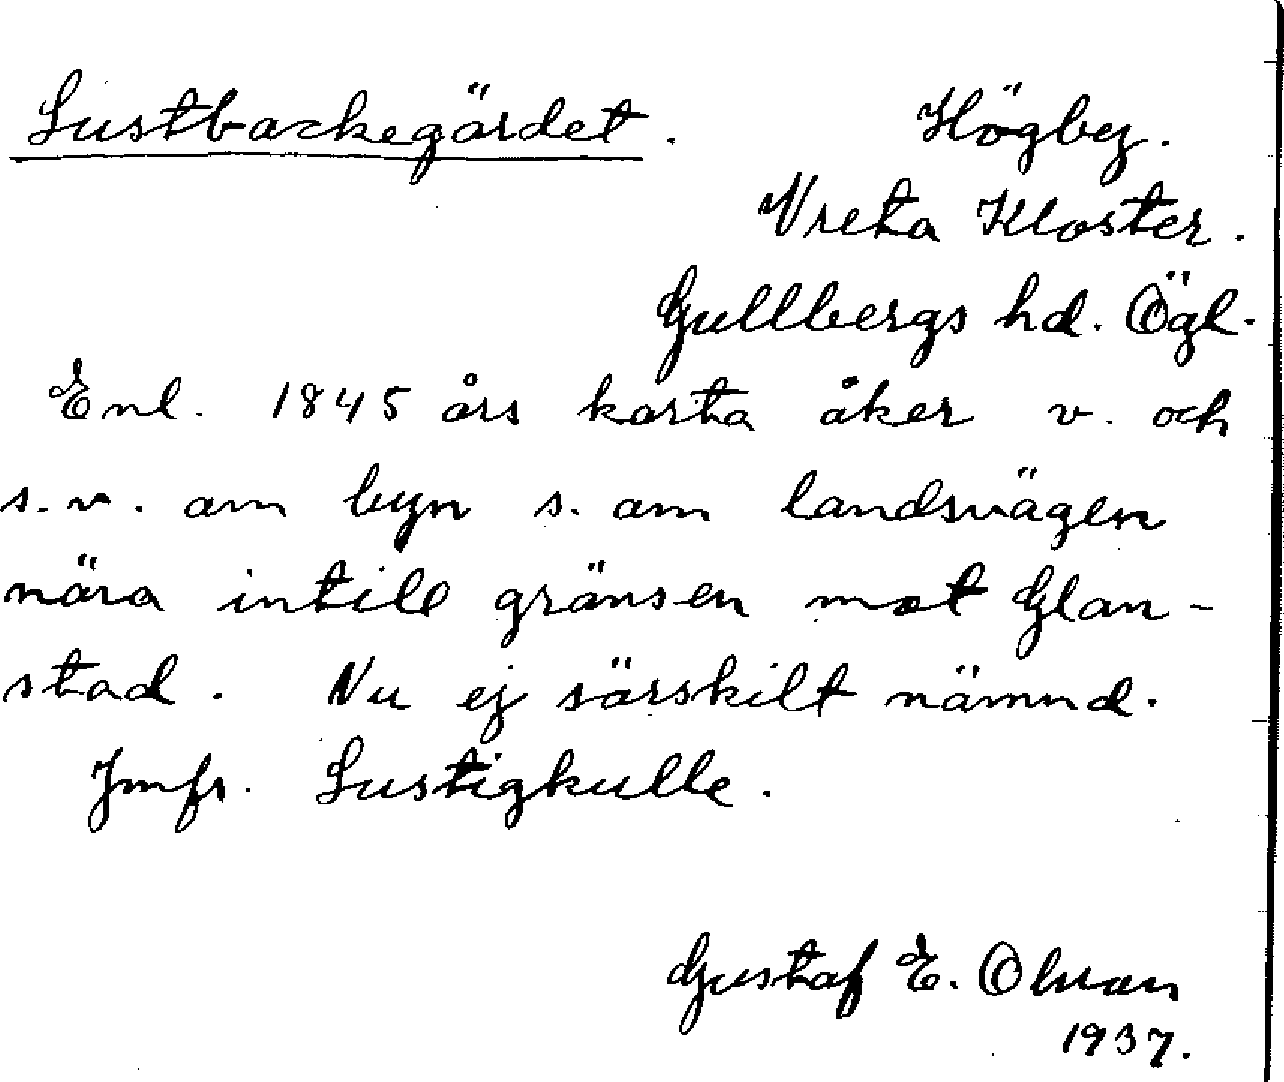 Lustbackegärdet. Högby.
Vreta Kloster.
Gullbergs hd. Ögl.
Enl. 1845 års karta åker v. och
s.v. om byn s. om landsvägen
nära intill gränsen mot Glan-
stad. Nu ej särskilt nämnd.
Jmfr. Lustigkulle.
Gustaf E. Olsson
1937.